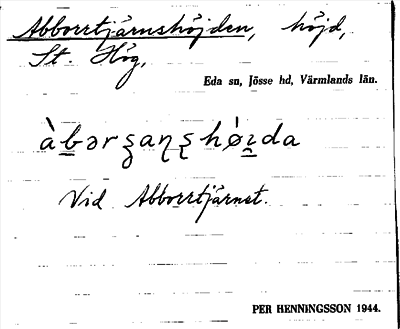 Abborrtjärnshöjden, höjd,
St. Hög,
Eda sn, Jösse hd, Värmlands län.
àb̲ərʂaɳʂhǿʐda
Vid Abborrtjärnet.
PER HENNINGSSON 1944.